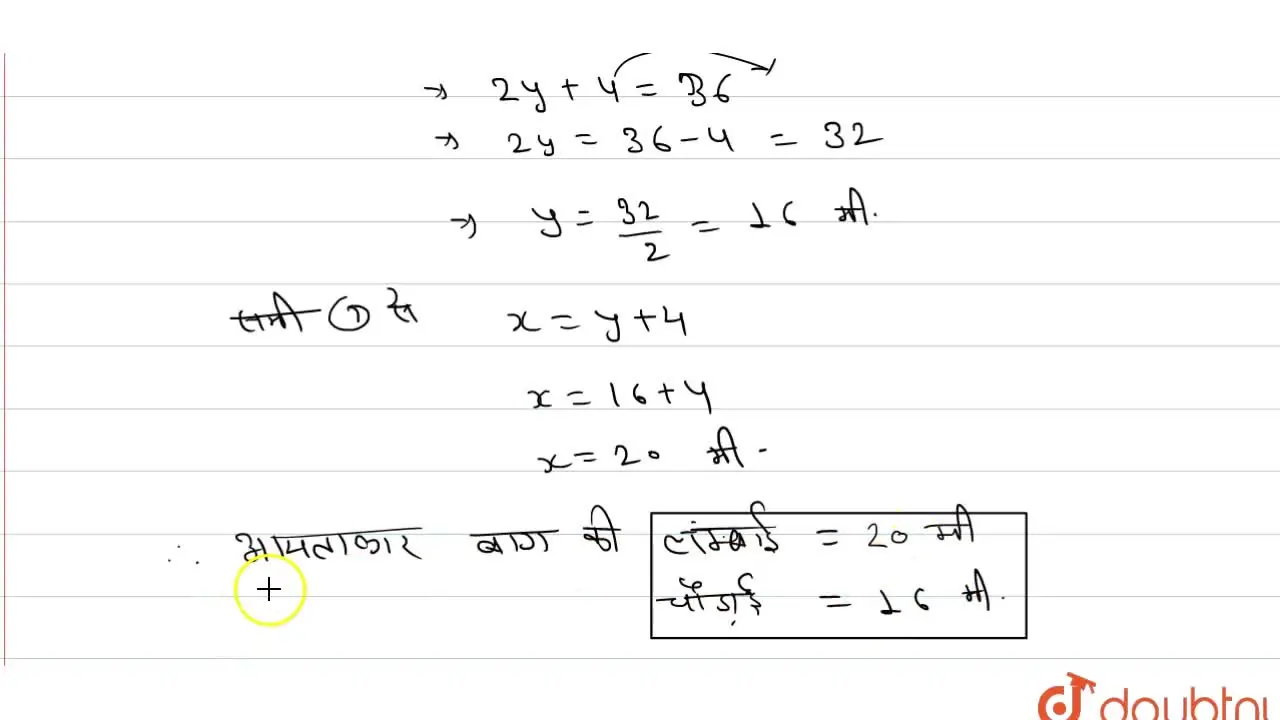 → 2y + 4 = 36
→ 2y = 36 - 4 = 32
→ y = 32/2 = 16 मी.
समी ① से x = y + 4
x = 16 + 4
x = 20 मी.
∴ आयताकार बाग की लम्बाई = 20 मी
चौड़ाई = 16 मी.
doubtnu